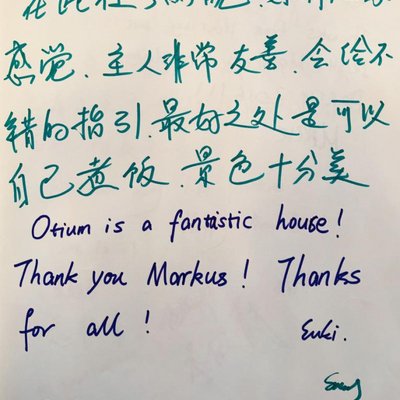 感觉、主人非常友善、会给不
错的指引、最好之处是可以
自己煮饭、景色十分美
Otium is a fantastic house!
Thank you Markus! Thanks
for all!